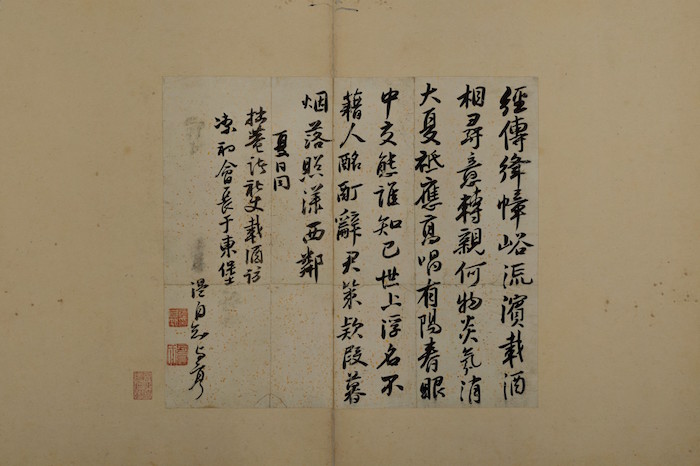 經傳絳幛峪流濱載酒
相尋意轉親何物炎氛消
大夏祗應高唱有陽春眼
中交態誰知己世上浮名不
藉人酩酊辭君策款段暮
烟落照漾西鄰
夏日同
拙菴諸社丈載酒訪
和會長于東堡
温自知与亨